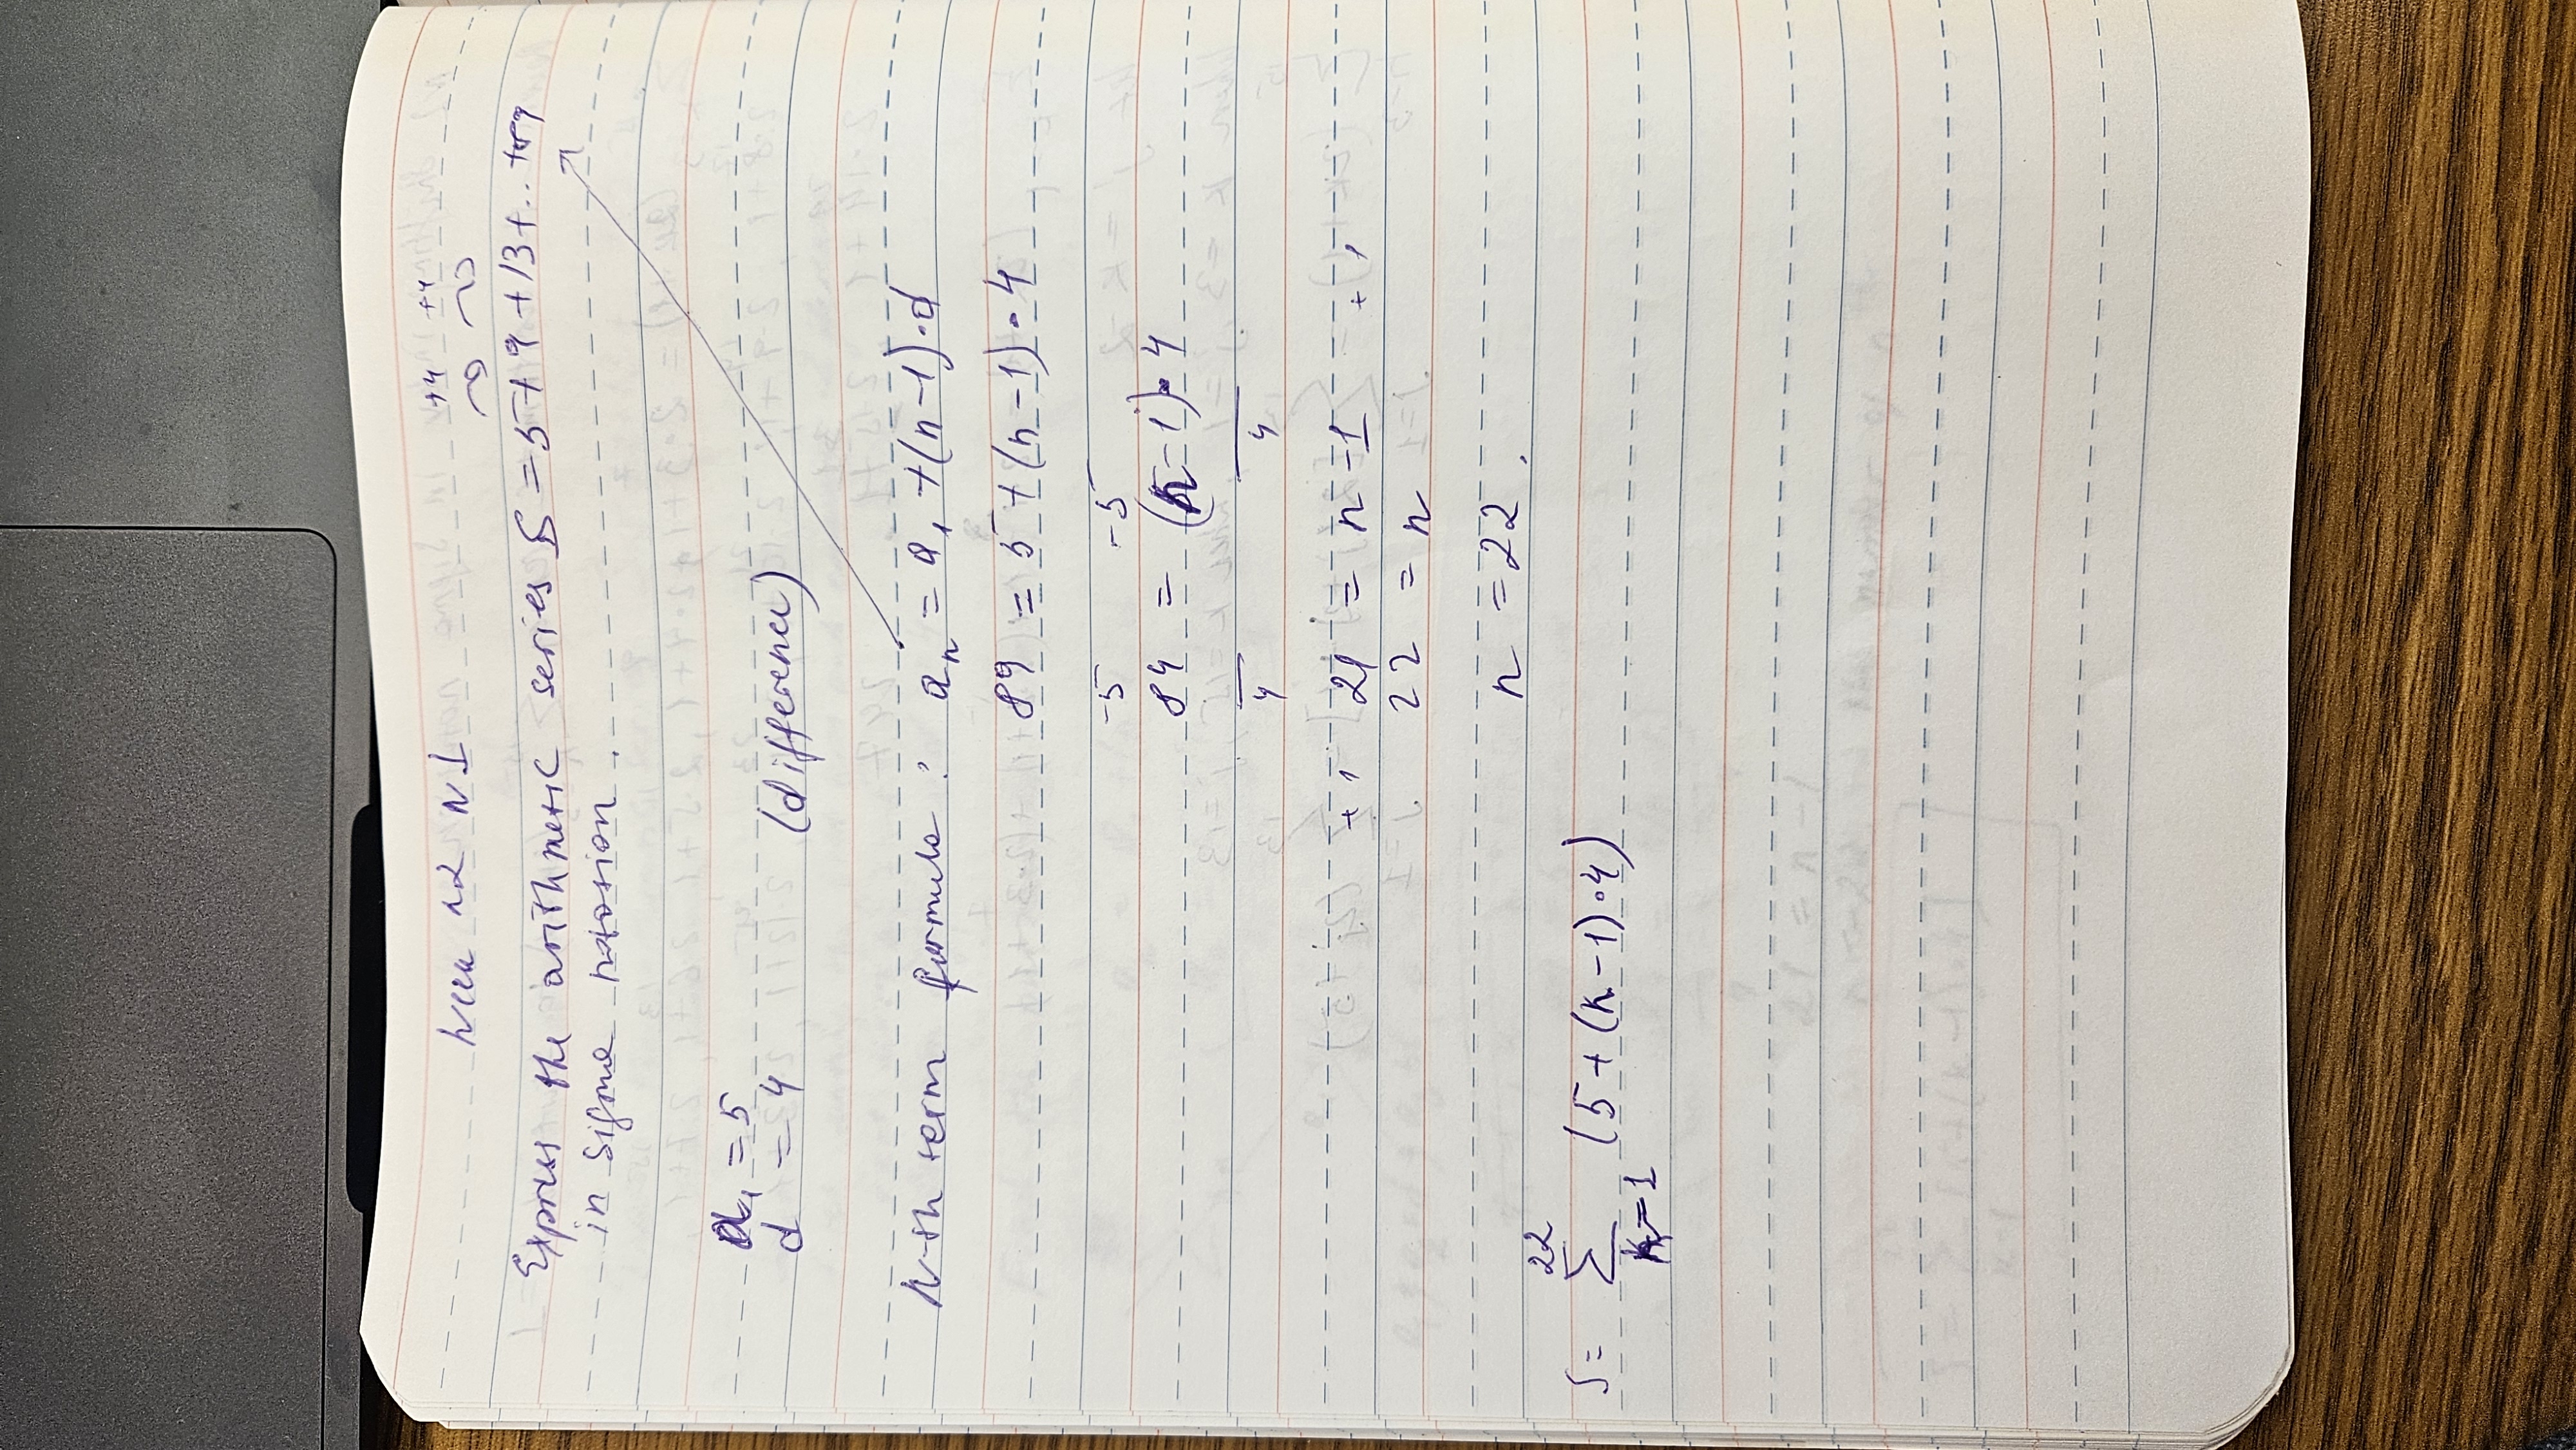 Week 12 N1
+4 +4
Express the arithmetic series S = 5 + 9 + 13 + .. + 89
in sigma notation.
a₁ = 5
d = 4 (difference)
N-th term formula : aₙ = a₁ + (n-1)·d
89 = 5 + (n-1)·4
-5 -5
84 = (n-1)·4
4 4
+1 21 = n-1 +1
22 = n
n = 22.
22
S = Σ (5 + (k-1)·4)
k=1